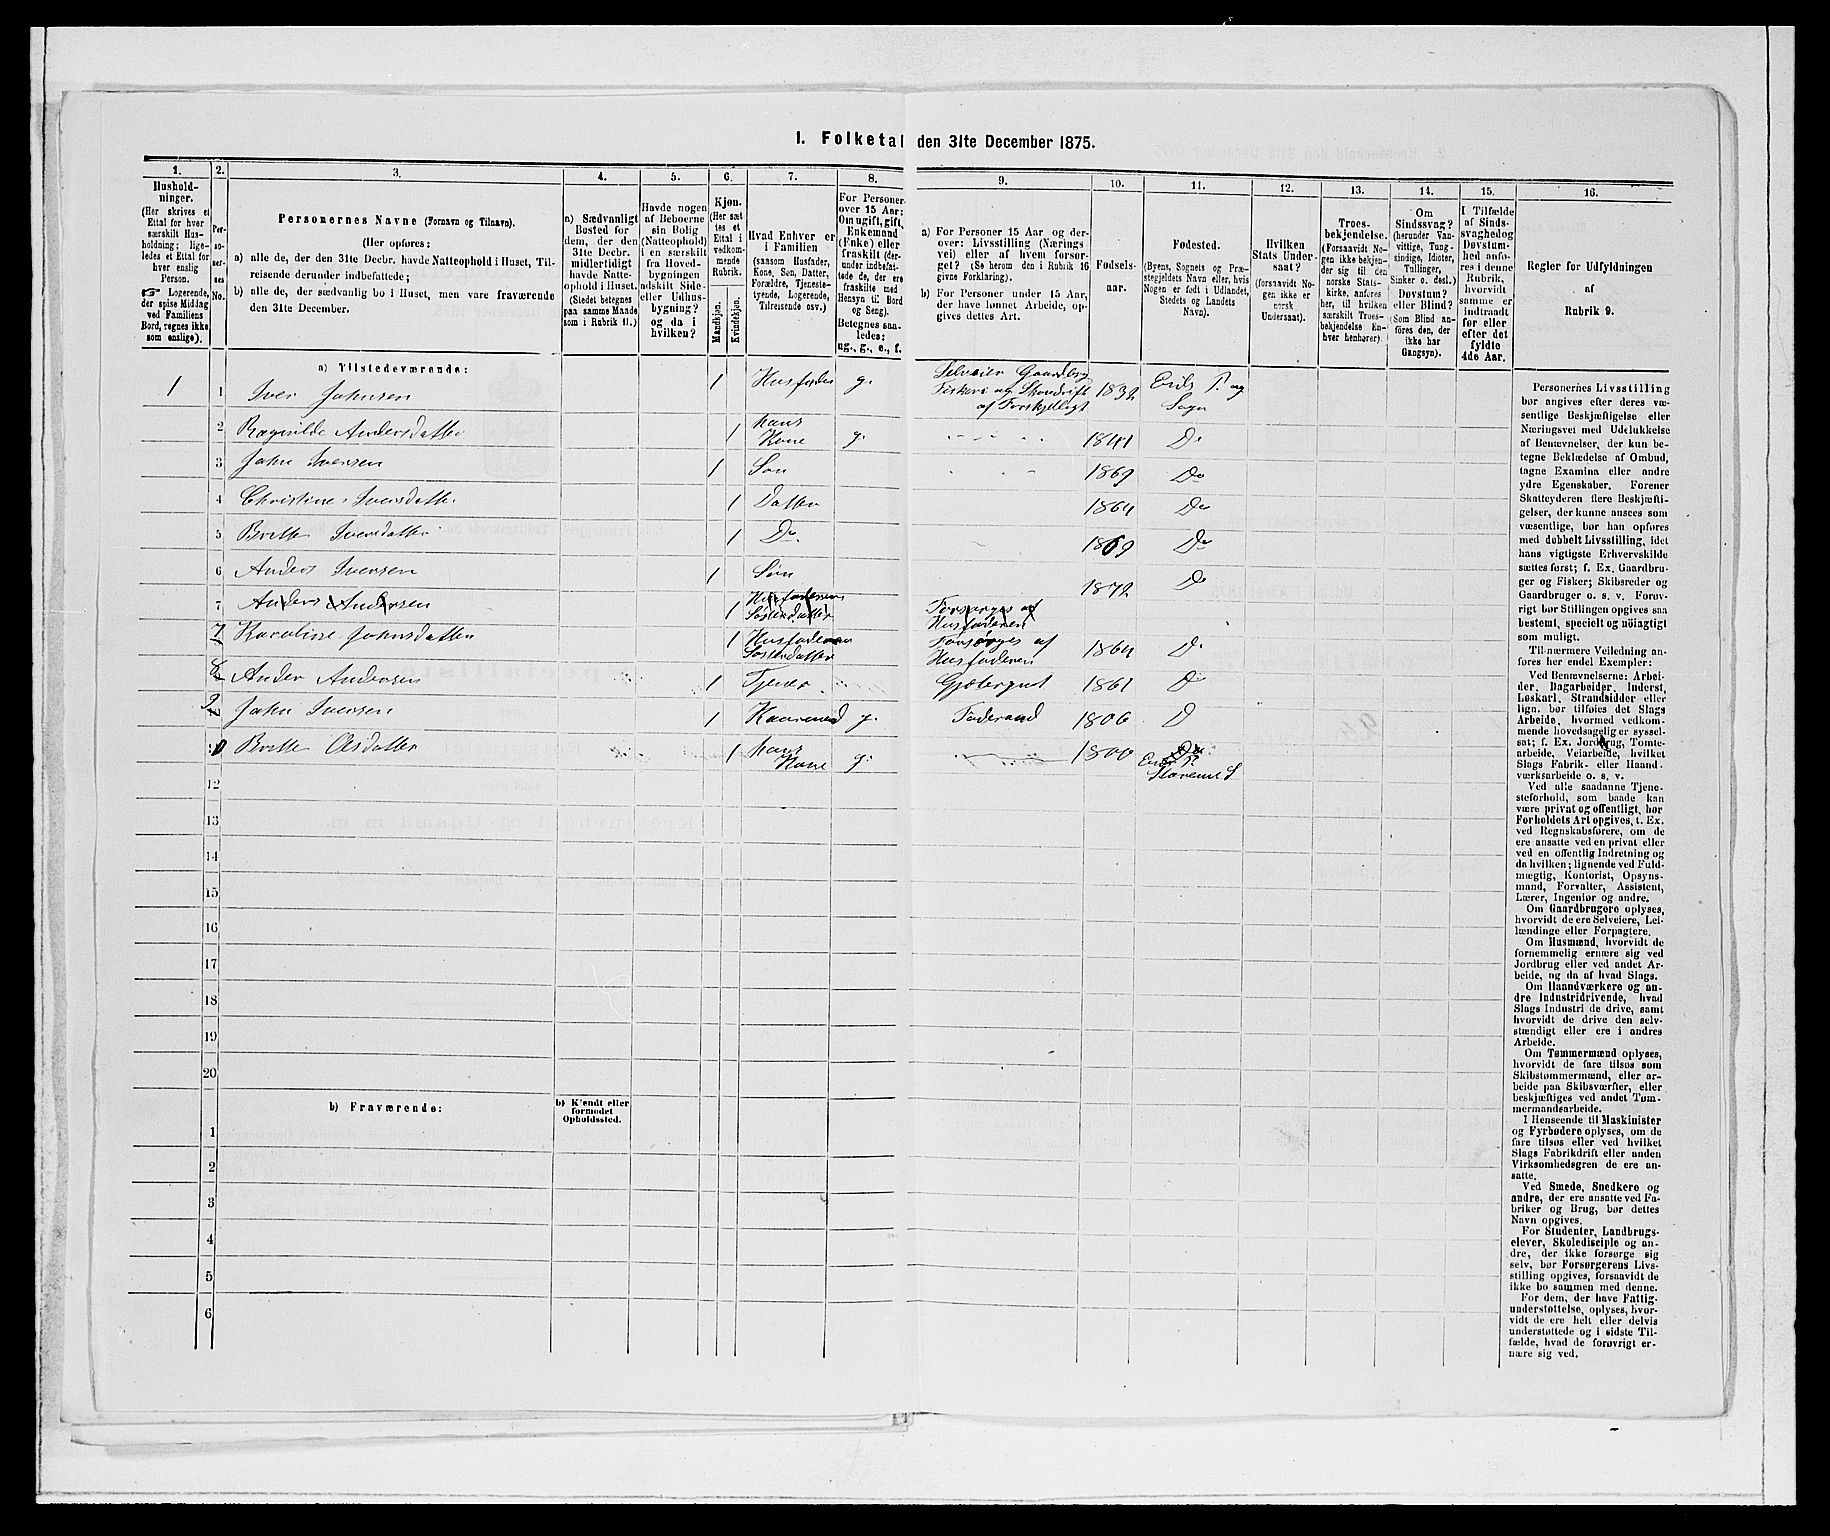 1. Folketal den 31te December 1875.
1.
2.
3.
4.
5.
6.
7.
8.
9.
10.
11.
12.
13.
14.
15.
16.
Hushold-
ninger.
(Her skrives et
Ettal for hver
særskilt Hus-
holdning; lige-
ledes et Ettal for
hver enslig
Person.
☞ Logerende,
der spise Middag
ved Familiens
Bord, regnes ikke
som enslige).
Per-
so-
ner-
nes
No.
Personernes Navne (Fornavn og Tilnavn).
(Her opføres:
a) alle de, der den 31te Decbr. havde Natteophold i Huset, Til-
reisende derunder indbefattede;
b) alle de, der sædvanlig bo i Huset, men vare fraværende
den 31te December.
a) Sædvanligt
Bosted for
dem, der den
31te Decbr.
midlertidigt
havde Natte-
ophold i Huset.
(Stedet betegnes
paa samme Maade
som i Rubrik 11.)
Havde nogen
af Beboerne
sin Bolig
(Natteophold)
i en særskilt
fra Hoved-
bygningen
adskilt Side-
eller Udhus-
bygning?
og da i
hvilken?
Kjøn.
(Her sæt-
tes et
Ettal i
vedkom-
mende
Rubrik.
Mandkjøn.
Kvindekjøn.
Hvad Enhver er
i Familien
(saasom Husfader,
Kone, Søn, Datter,
Forældre, Tjeneste-
tyende, Logerende,
Tilreisende osv.)
For Personer
over 15 Aar:
Om ugift, gift,
Enkemand
(Enke) eller
fraskilt (der-
under indbefat-
tede de, der ere
fraskilte med
Hensyn til Bord
og Seng).
Betegnes saa-
ledes:
ug., g., e., f.
a) For Personer 15 Aar og der-
over: Livsstilling (Nærings-
vei) eller af hvem forsør-
get? (Se herom den i Rubrik 16
givne Forklaring).
b) For Personer under 15 Aar,
der have lønnet Arbeide, op-
gives dettes Art.
Fødsels-
aar.
Fødested.
(Byens, Sognets og Præ-
stegjeldets Navn eller, hvis
Nogen er født i Udlandet,
Stedets og Landets
Navn).
Hvilken
Stats Under-
saat?
(forsaavidt No-
gen ikke er
norsk
Undersaat).
Troes-
bekjendelse.
(Forsaavidt No-
gen ikke bekjen-
der sig til den
norske Stats-
kirke, anføres
her, til hvilken
særskilt Troes-
bekjendelse En-
hver henhører).
Om
Sindssvag?
(herunder Van-
vittige, Tung-
sindige, Idioter,
Tullinger,
Sinker o. desl.)
Døvstum?
eller Blind?
(Som Blind an-
føres den, der
ikke har
Gangsyn).
I Tilfælde
af Sinds-
svaghed og
Døvstum-
hed anfø-
res i denne
Rubrik,
hvorvidt
samme er
indtraadt
før eller
efter det
fyldte
4de Aar.
Regler for Udfyldningen
af
Rubrik 9.
a) Tilstedeværende:
1 1 Iver Johnsen 1 Husfader g. Selveier Gaardbrug Fiskeri og Skovdrift af Forskjelligt 1832 Eids P. og Sogn
2 Ragnilde Andersdatter 1 hans Kone g. 1841 Do
3 John Iversen 1 Søn 1869 Do
4 Christine Iversdatter 1 Datter 1864 Do
5 Brethe Iversdatter 1 Do. 1869 Do
6 Anders Iversen 1 Søn 1872 Do
7 Anders Andersen 1 Husfaderens Søsterdatter Forsørges af Husfaderen
7 Karoline Johnsdatter 1 Husfaderens Søsterdatter Forsørges af Husfaderen 1864 Do
8 Anders Andersen 1 Tjener Gjætergut 1861 Do
9 John Iversen 1 Kaarmand g. Føderaad 1806 D
10 Brethe Olsdatter 1 hans Kone g. 1800 Do Eids P. Starems S
12
13
14
15
16
17
18
19
20
b) Fraværende:
b) Kjendt eller
formodet
Opholdssted.
1
2
3
4
5
6
Personernes Livsstilling
bør angives efter deres væ-
sentlige Beskjæftigelse eller
Næringsvei med Udelukkelse
af Benævnelser, der kun be-
tegne Beklædelse af Ombud,
tagne Examina eller andre
ydre Egenskaber. Forener
Skatteyderen flere Beskjæfti-
gelser, der kunne ansees som
væsentlige, bør han opføres
med dobbelt Livsstilling, idet
hans vigtigste Erhvervskilde
sættes først; f. Ex. Gaardbru-
ger og Fisker; Skibsreder og
Gaardbruger o. s. v. Forøv-
rigt bør Stillingen opgives saa
bestemt, specielt og nöiagtigt
som muligt.
Til nærmere Veiledning an-
føres her endel Exempler:
Ved Benævnelserne: Arbei-
der, Dagarbeider, Inderst,
Løskarl, Strandsidder eller
lign. bør tilføies det Slags
Arbeide, hvormed vedkom-
mende hovedsagelig er syssel-
sat; f. Ex. Jordbrug, Tomte-
arbeide, Veiarbeide, hvilket
Slags Fabrik- eller Haand-
værksarbeide o. s. v.
Ved alle saadanne Tjene-
steforhold, som baade kan
være privat og offentligt, bør
Forholdets Art opgives, t. Ex.
ved Regnskabsførere, om de
ere ansatte ved en privat eller
ved en offentlig Indretning og
da hvilken; lignende ved Fuld-
mægtig, Kontorist, Opsyns-
mand, Forvalter, Assistent,
Lærer, Ingeniør og andre.
Om Gaardbrugere oplyses,
hvorvidt de ere Selveiere, Lei-
lændinge eller Forpagtere.
Om Husmænd, hvorvidt de
fornemmelig ernære sig ved
Jordbrug eller ved andet Ar-
beide, og da af hvad Slags.
Om Haandværkere og an-
dre Industridrivende, hvad
Slags Industri de drive, samt
hvorvidt de drive den selv-
stændigt eller ere i andres
Arbeide.
Om Tømmermænd oplyses,
hvorvidt de fare tilsøs som
Skibstømmermænd, eller ar-
beide paa Skibsværfter, eller
beskjæftiges ved andet Tøm-
mermandsarbeide.
I Henseende til Maskinister
og Fyrbødere oplyses, om de
fare tilsøs eller ved hvilket
Slags Fabrikdrift eller anden
Virksomhedsgren de ere an-
satte.
Ved Smede, Snedkere og
andre, der ere ansatte ved Fa-
briker og Brug, bør dettes
Navn opgives.
For Studenter, Landbrugs-
elever, Skoledisciple og an-
dre, der ikke forsørge sig
selv, bør Forsørgerens Livs-
stilling opgives, forsaavidt de
ikke bo sammen med denne.
For dem, der have Fattig-
understøttelse, oplyses, hvor-
vidt de ere helt eller delvis
understøttede og i sidste Til-
fælde, hvad de forøvrigt er-
nære sig ved.